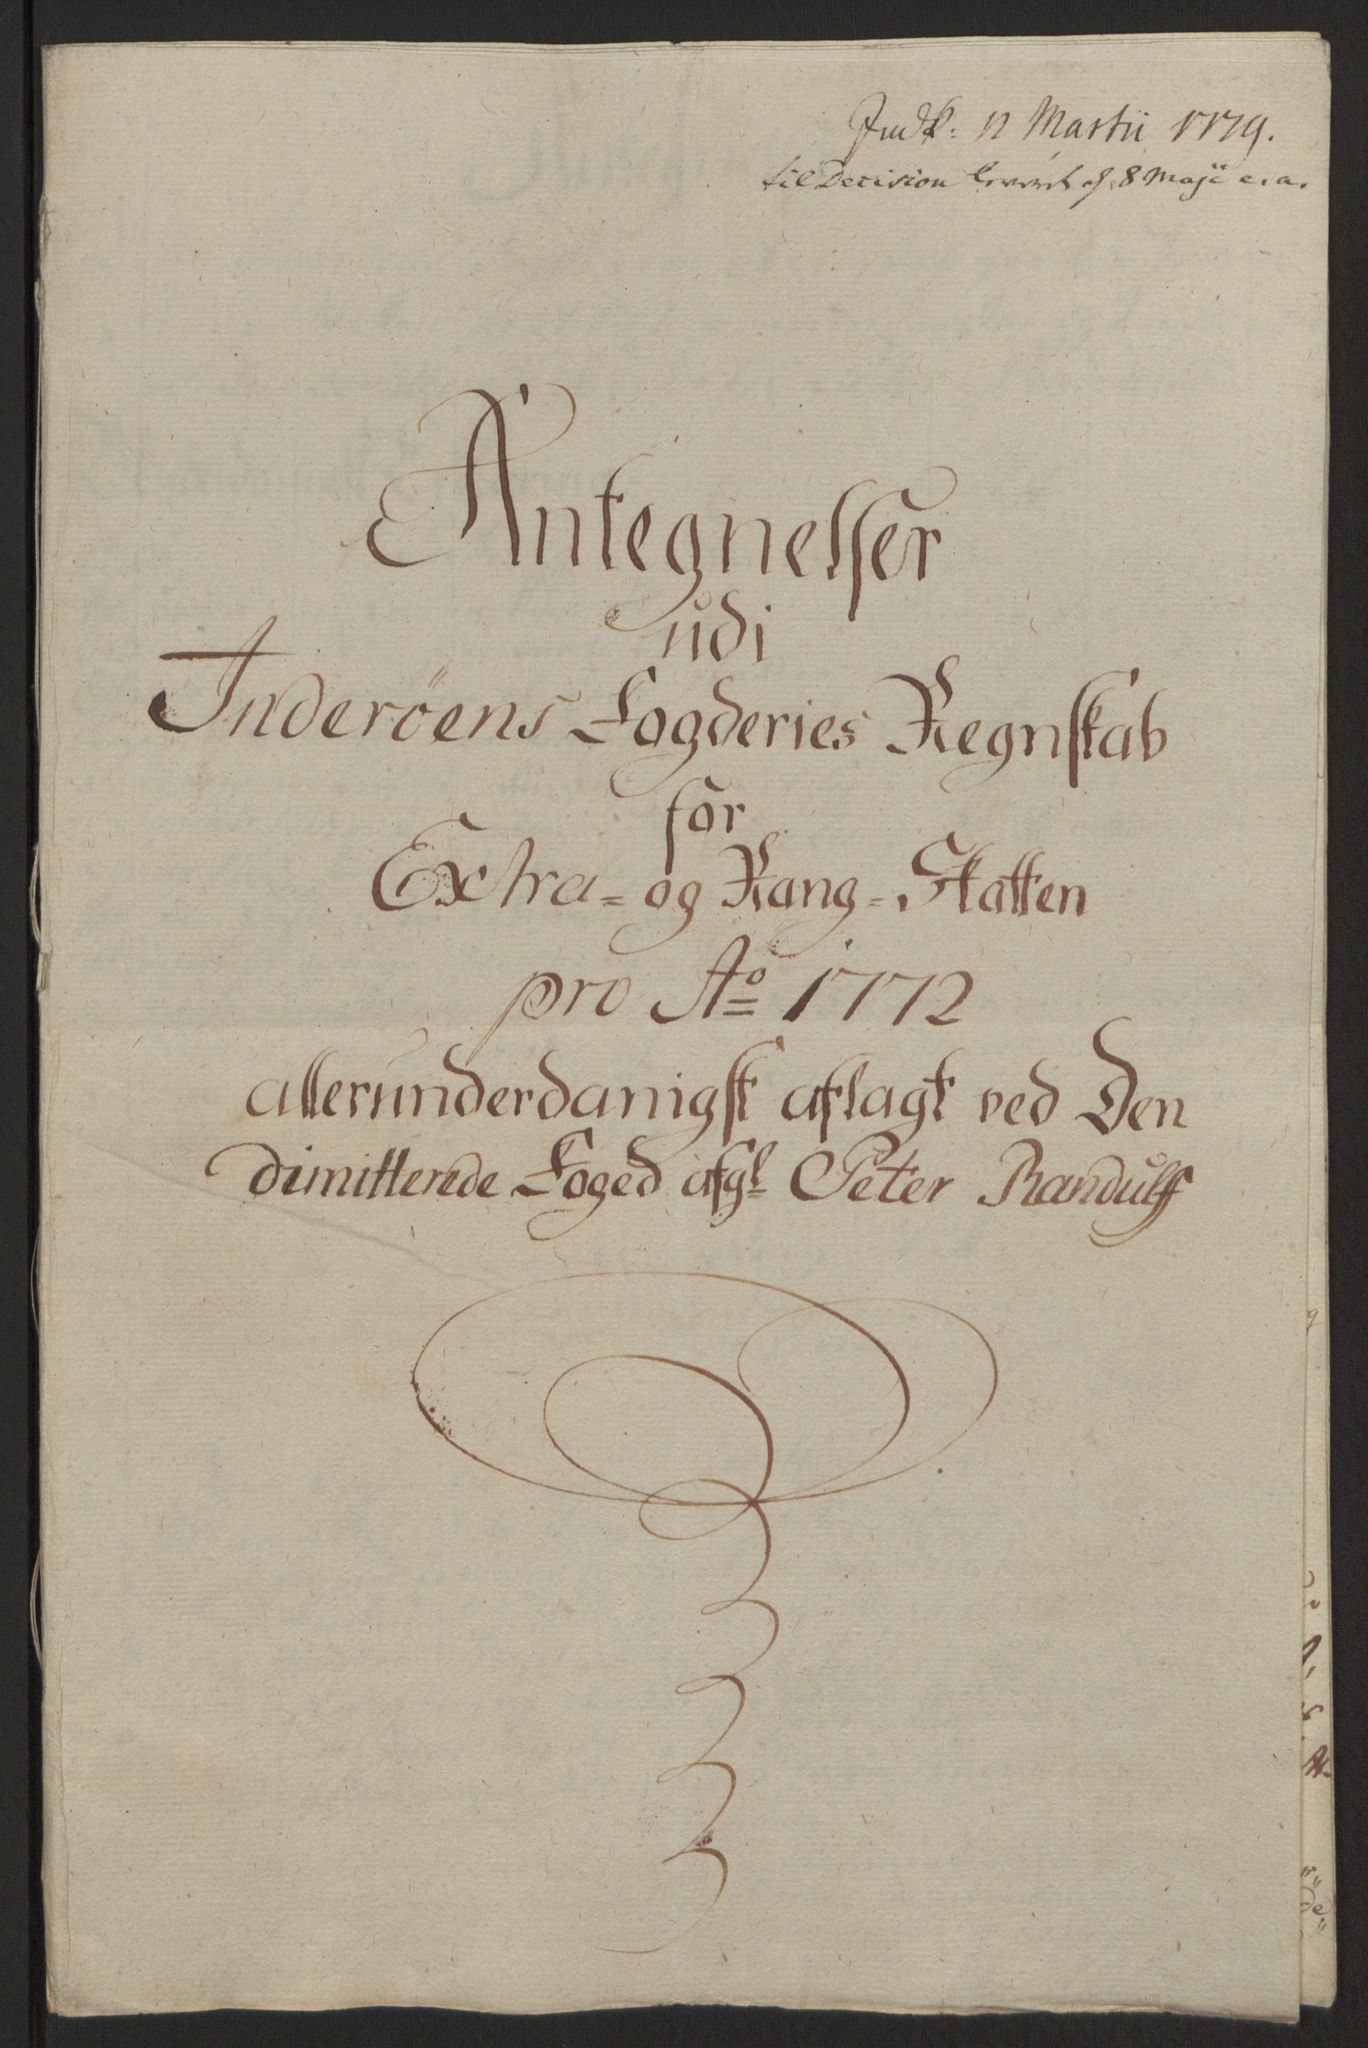 Indk: 12 Martii 1779.
til Decision leveret d. 8 Maji e. a.
Antegnelser
udi
Inderöens Fogderies Regnskab
for
Extra- og Rang-Skatten
pro Ao 1772
allerunderdanigst aflagt ved Den
dimitterede Foged afgl Peter Randulff